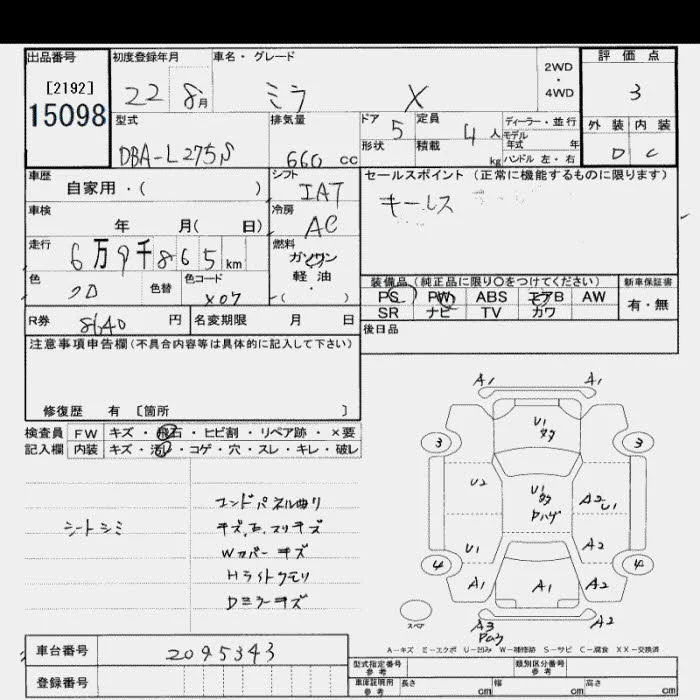 出品番号 初度登録年月 車名・グレード 評価点
[2192] 22 8月 ミラ X 2WD・4WD 3
15098 型式 排気量 ドア 5 定員 4人 ディーラー・並行 外装 内装
DBA-L275S 660cc 形状 積載 kg モデル年式 年 ハンドル 左・右 D C
車歴 シフト セールスポイント(正常に機能するものに限ります)
自家用・( ) IAT キーレス
車検 冷房
年 月( 日) AC
走行 燃料
6万9千865km ガソリン
色 色替 色コード 軽油
X07 ・( ) 装備品(純正品に限り○をつけてください) 新車保証書
PS PW ABS エアB AW 有・無
R券 8640円 名変期限 月 日 SR ナビ TV カワ
注意事項申告欄(不具合内容等は具体的に記入して下さい) 後日品
修復歴 有 [箇所 ]
検査員 FW キズ・飛石・ヒビ割・リペア跡・×要
記入欄 内装 キズ・汚れ・コゲ・穴・スレ・キレ・破レ
シートシミ
コンドパネル曲り
Wカバーキズ
Hライトクモリ
Dミラーキズ
A1 A1
U1
3 3
U2 U1 A2 U1
U1 A2
4 4
A1 A1 A2
スペア A3 A2
A-キズ E-エクボ U-凹み W-補修跡 S-サビ C-腐食 XX-交換済
車台番号 2095343 型式指定番号 参考 類別区分番号 参考
登録番号 車庫証明用 参考 長さ cm 幅 cm 高さ cm